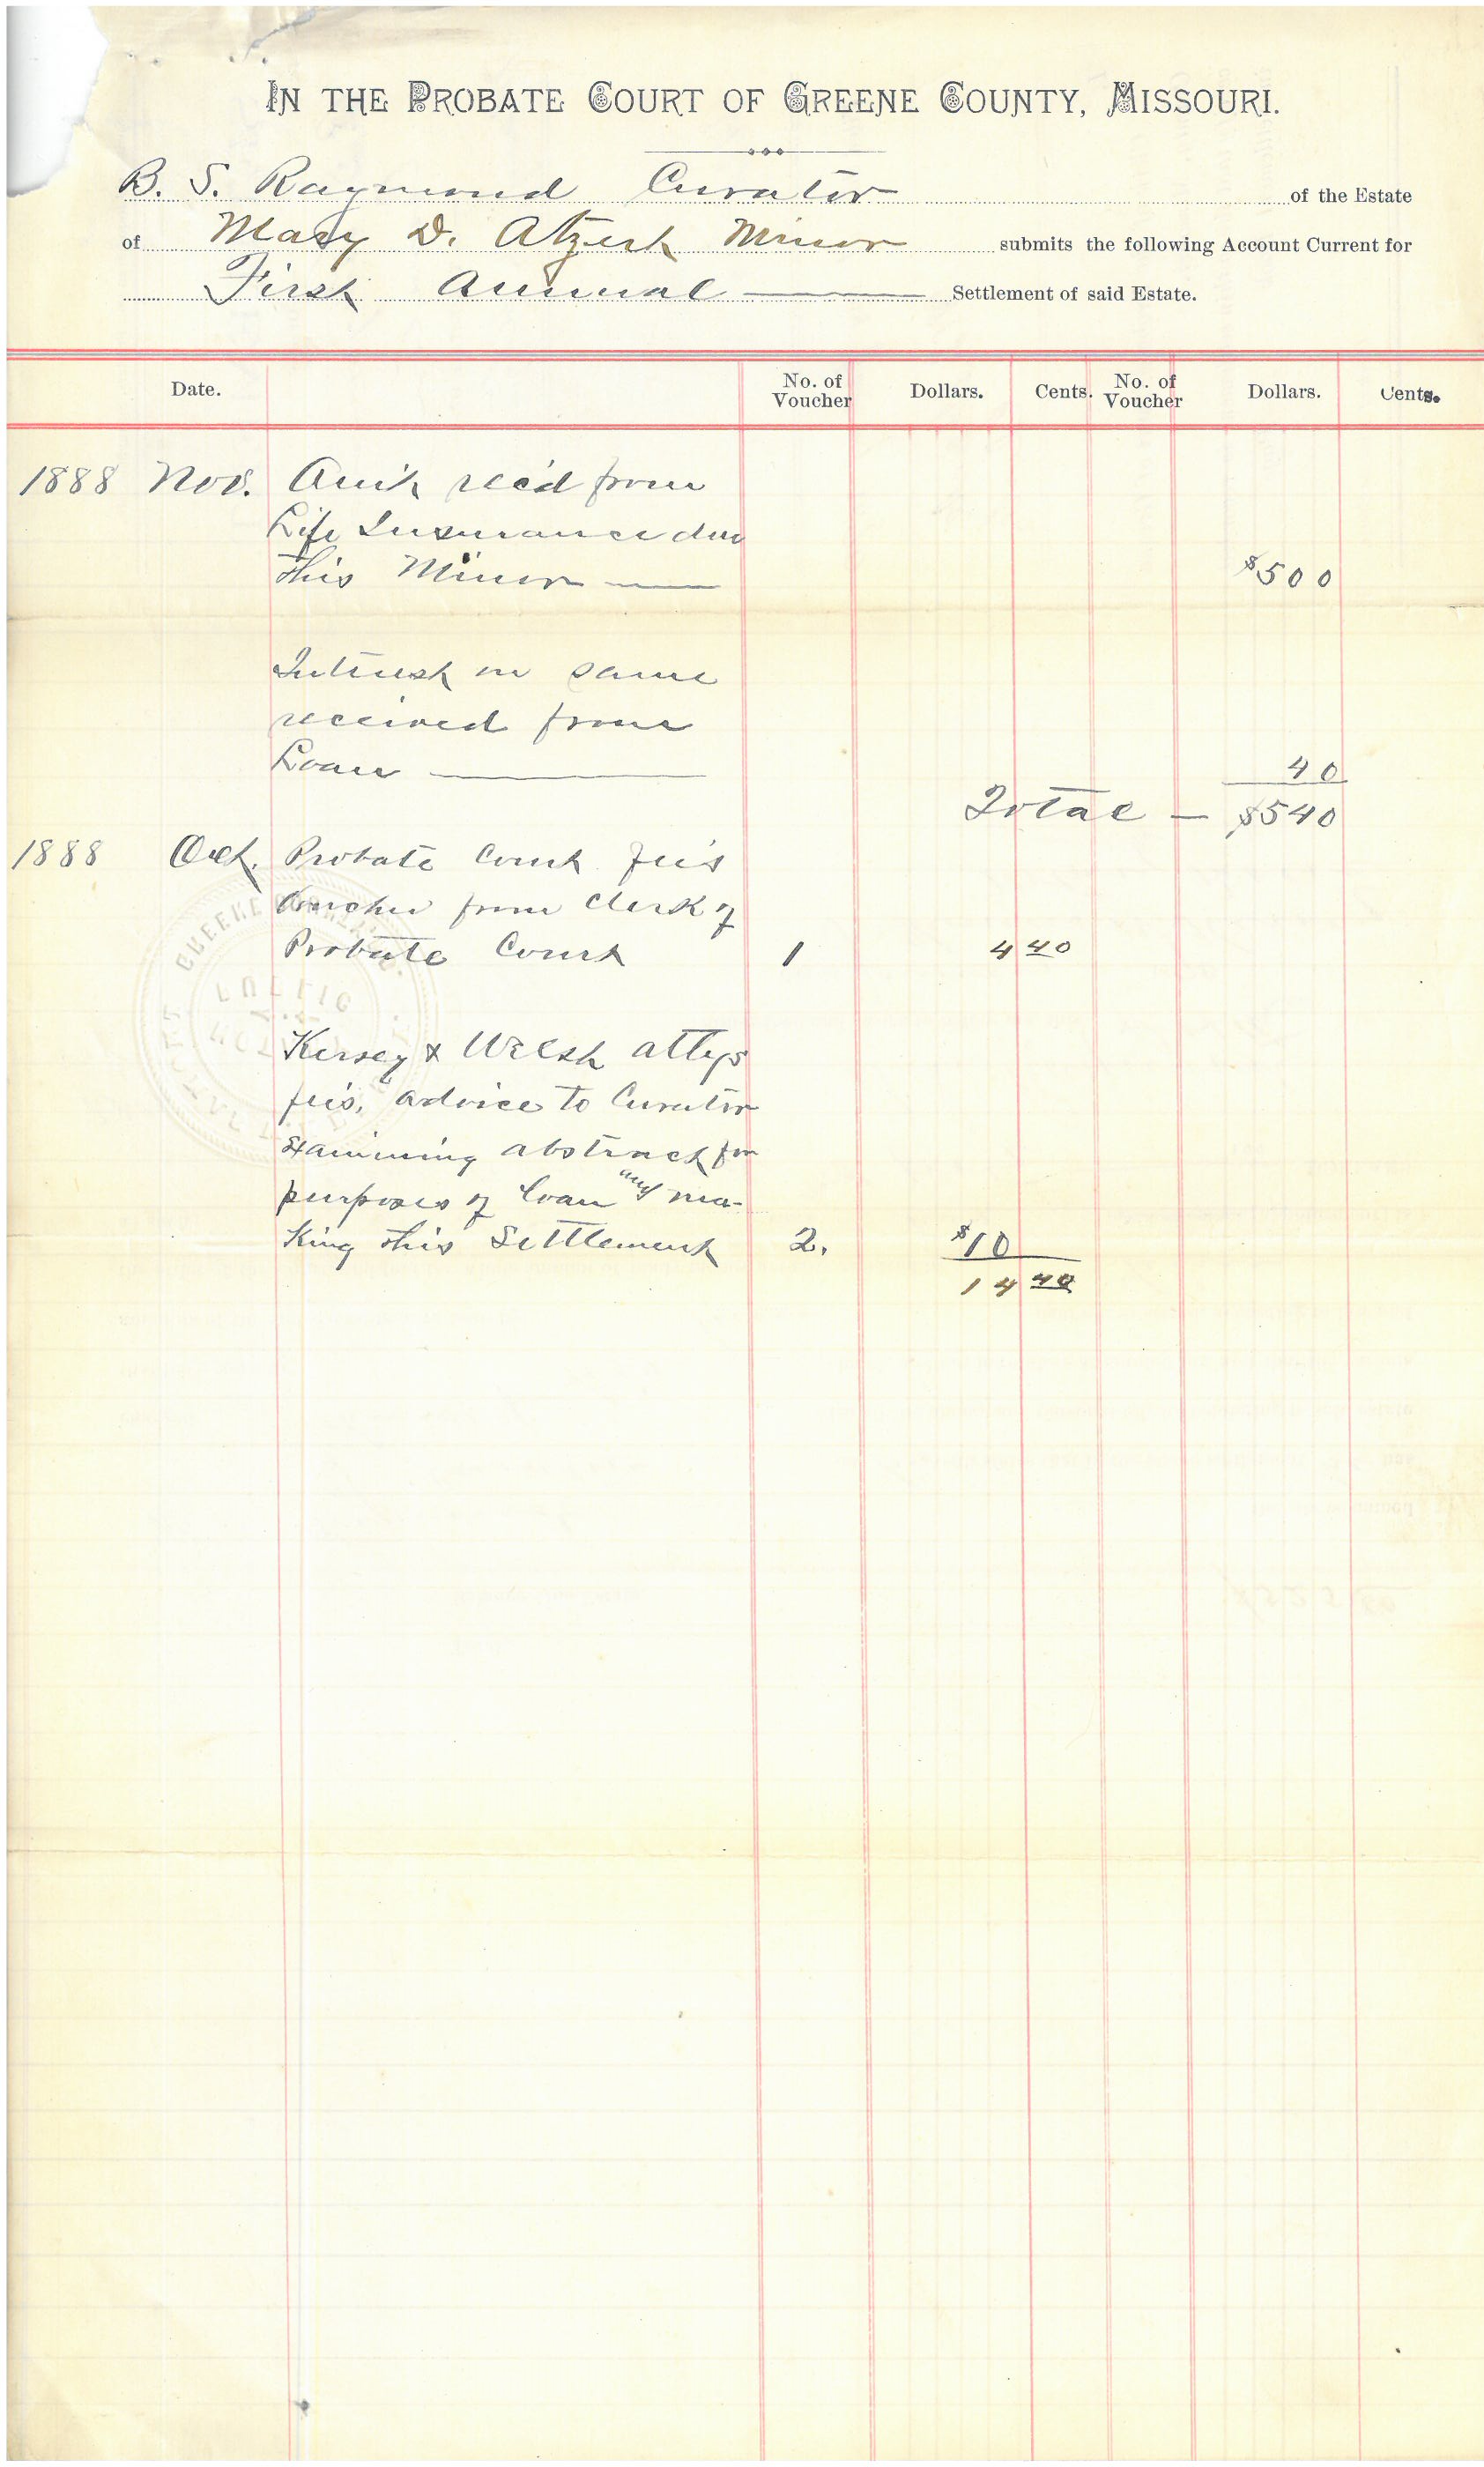 IN THE PROBATE COURT OF GREENE COUNTY, MISSOURI.
B. S. Raymond Curator of the Estate
of Mary D. Atzert Minor submits the following Account Current for
First Annual Settlement of said Estate.
Date. No. of Voucher Dollars. Cents. No. of Voucher Dollars. Cents.
1888 Nov. Am't rec'd from
Life Insurance due
this Minor — $500
Interest on same
received from
Loan — 40
Total — $540
1888 Oct. Probate Court fees
Voucher from Clerk of
Probate Court 1 4 40
Kersey & Welsh attys
fees, advice to Curator
examining abstract for
purposes of loan and ma-
king this Settlement 2. $10
14 40